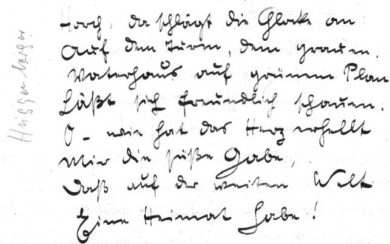 Horch, da schlägt die Glocke an
Auf dem Turm, dem grauen.
Vaterhaus auf grünem Plan
Läßt sich freundlich schauen.
O – wie hat das Herz erhellt
Mir die süße Gabe,
Daß auf der weiten Welt
Eine Heimat habe!
Huggenberger